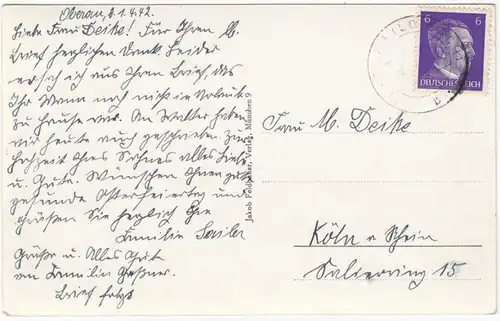 Oberau, d. 1.4.42.
Liebe Frau Deike! Für Ihren lb.
Brief herzlichen Dank. Leider
ersah ich aus Ihrem Brief, das
Ihr Mann noch nicht in Urlaub
zu Hause war. An Walter haben
wir heute auch geschrieben. Zur
Hochzeit Ihres Sohnes alles Liebe
u. Gute. Wünschen Ihnen gute
gesunde Osterfeiertag und
grüßen Sie herzlich Ihre
Familie Sailer
Grüße u. Alles Gute
von Familie
Brief folgt
Jakob Feldbauer, Verlag, München
6 6
DEUTSCHES REICH
Frau M. Deike
Köln a Rhein
Salierring 15